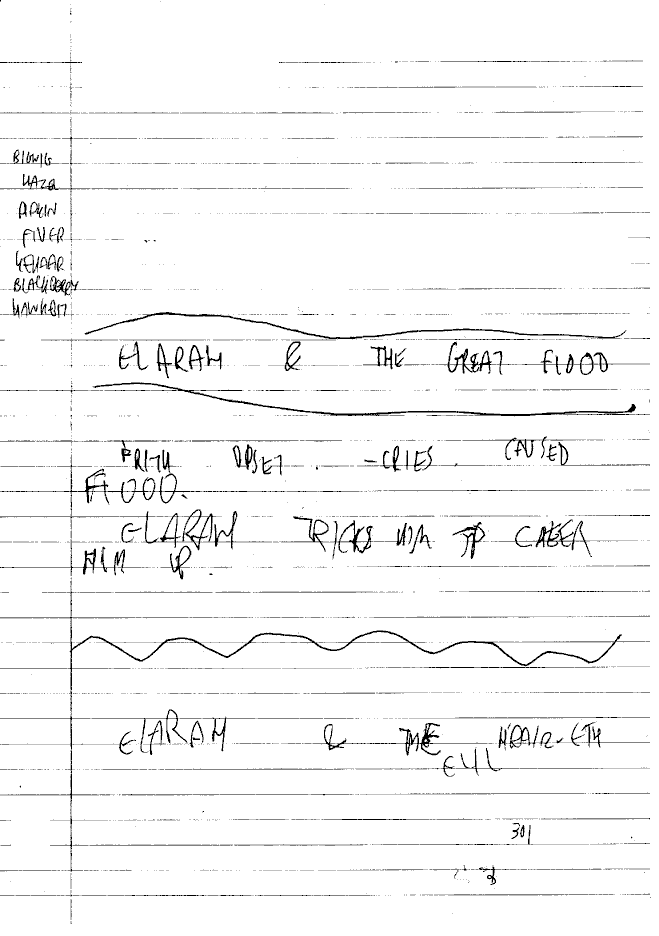 BIGWIG
HAZEL
PIPKIN
FIVER
KEHAAR
BLACKBERRY
HAWKBIT
ELARAH & THE GREAT FLOOD
FRITH UPSET. - CRIES. CAUSED
FLOOD.
ELARAH TRICKS HIM TO CHEER
HIM UP.
ELARAH & THE HRAIR-ETH
EVIL
301